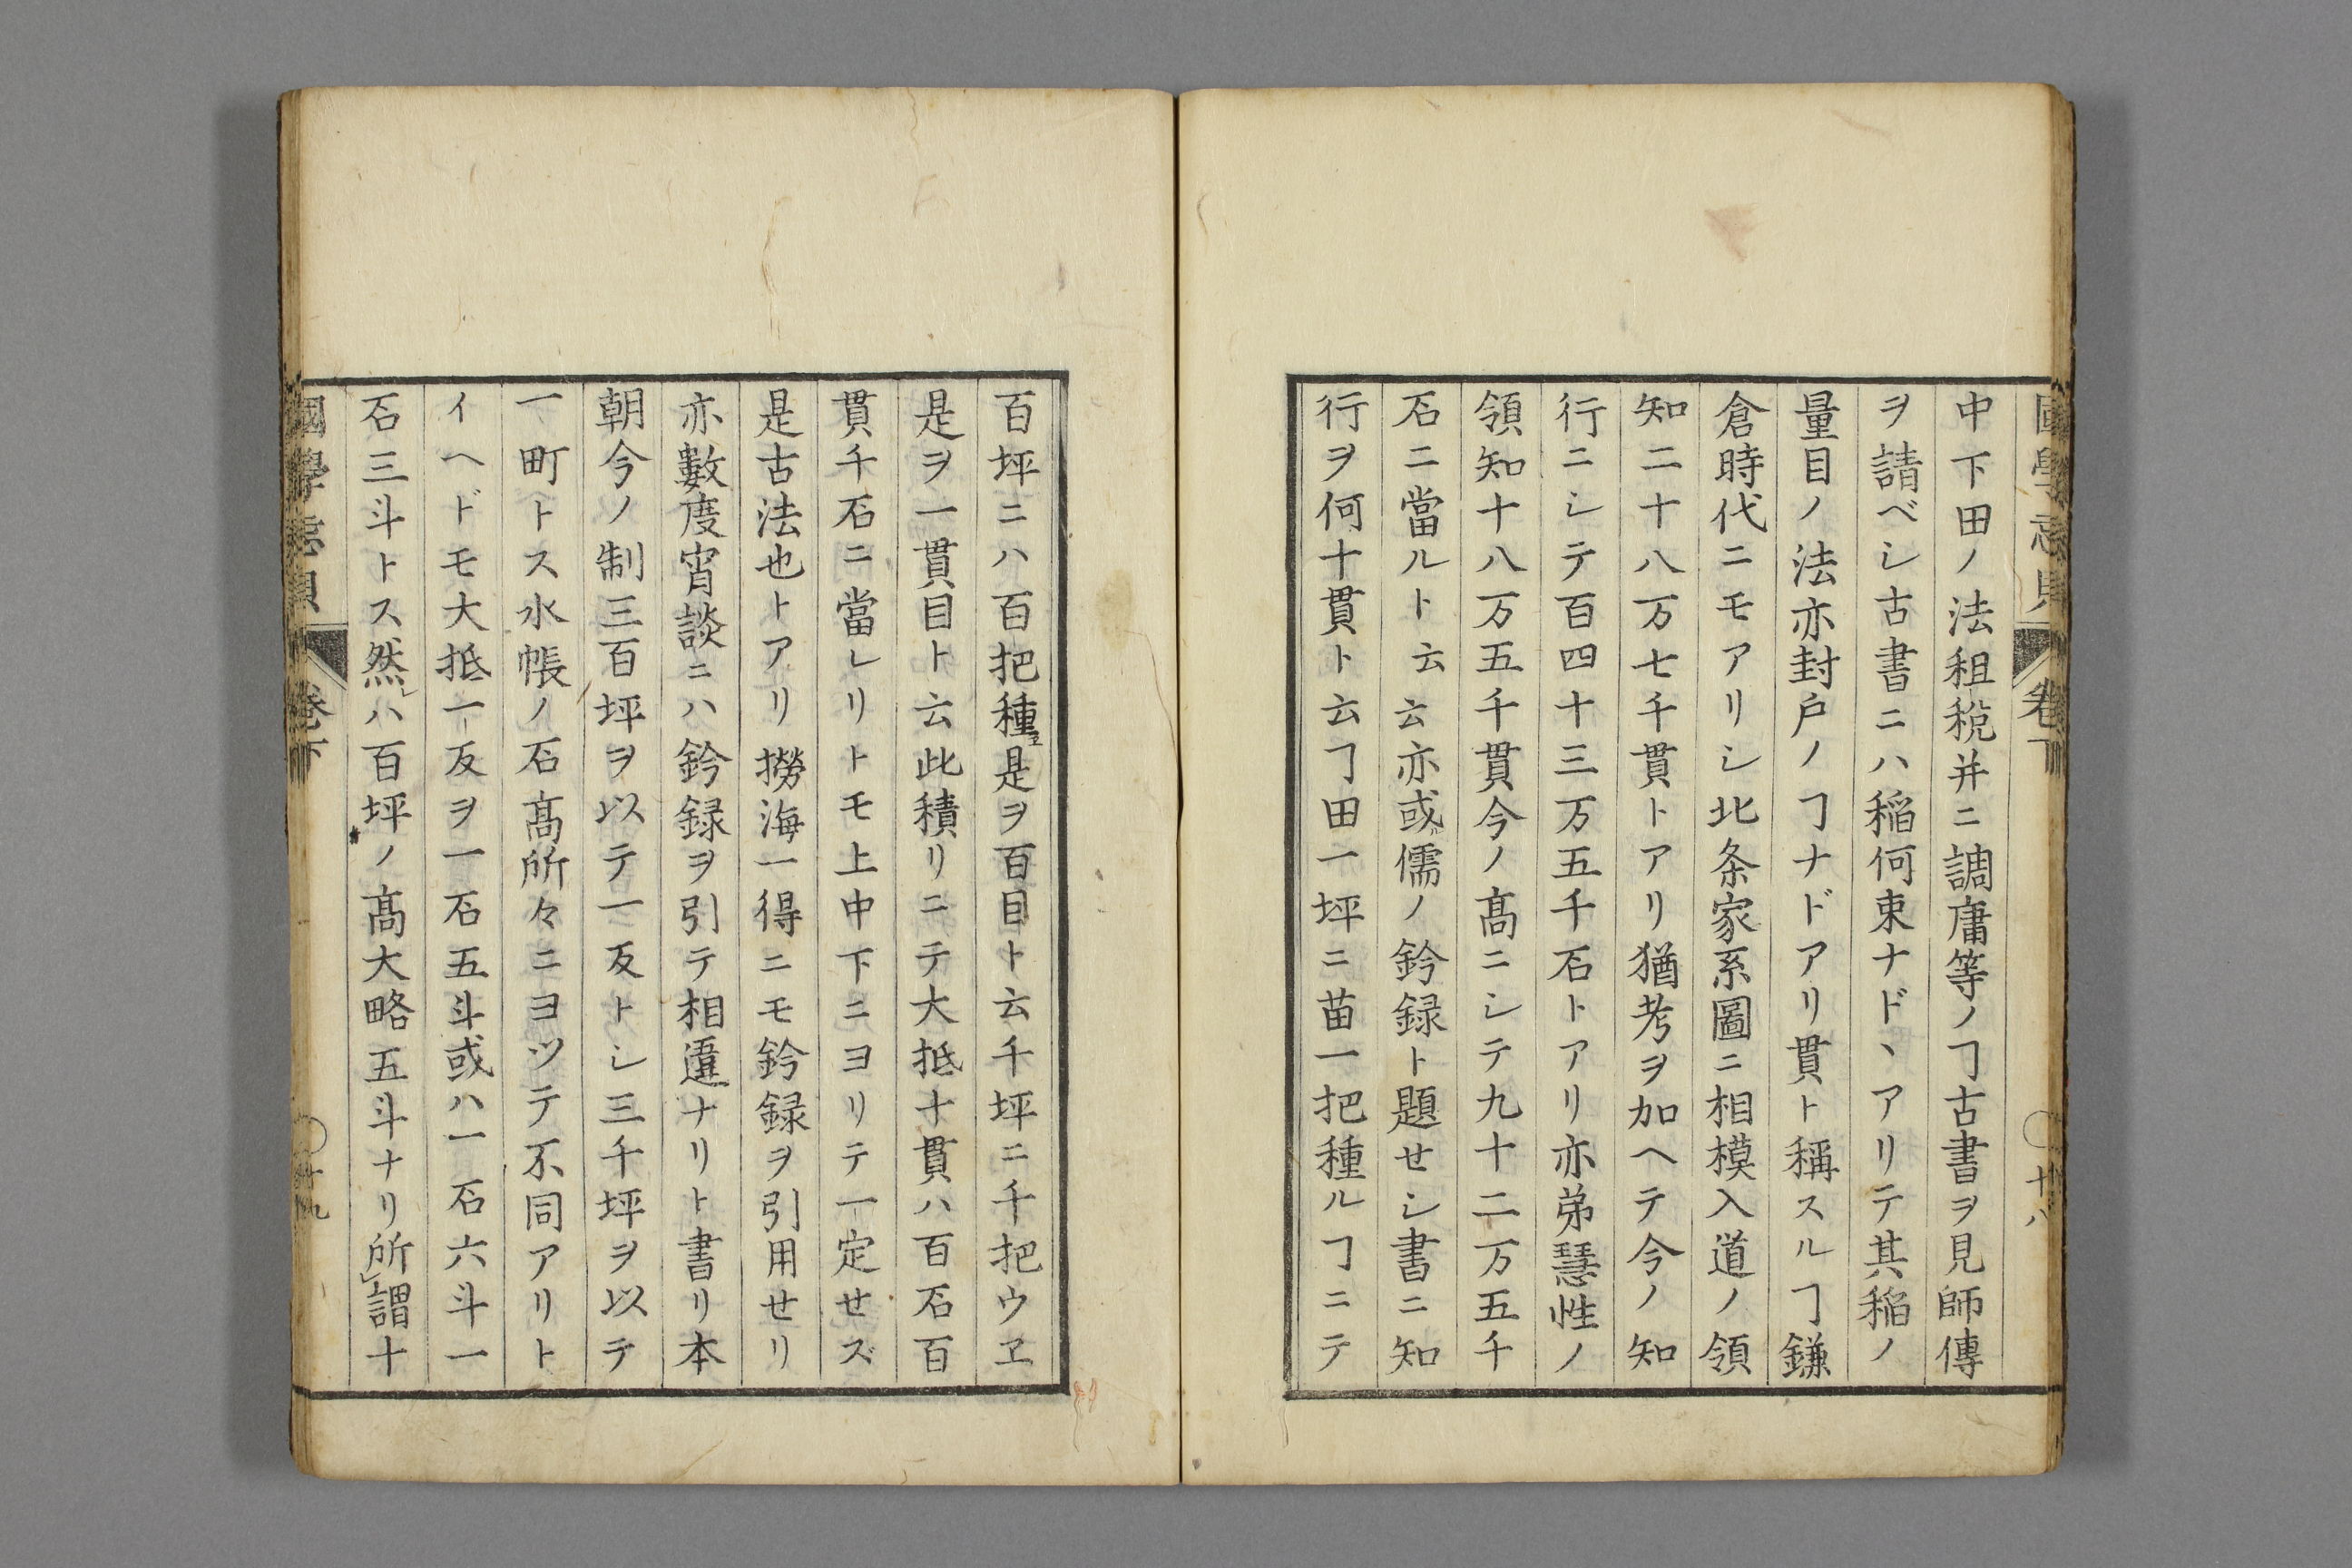 中下田ノ法租税并ニ調庸等ノヿ古書ヲ見師傳
ヲ請ベシ古書ニハ稲何束ナドヽアリテ其稲ノ
量目ノ法亦封戸ノヿナドアリ貫ト稱スルヿ鎌
倉時代ニモアリシ北条家系圖ニ相模入道ノ領
知二十八万七千貫トアリ猶考ヲ加ヘテ今ノ知
行ニシテ百四十三万五千石トアリ亦弟慧性ノ
領知十八万五千貫今ノ髙ニシテ九十二万五千
石ニ當ルト云云亦或儒ノ鈐録ト題セシ書ニ知
行ヲ何十貫ト云ヿ田一坪ニ苗一把種ルヿニテ
百坪ニハ百把種ヱ是ヲ百目ト云千坪ニ千把ウヱ
是ヲ一貫目ト云此積リニテ大抵十貫ハ百石百
貫千石ニ當レリトモ上中下ニヨリテ一定せズ
是古法也トアリ撈海一得ニモ鈐録ヲ引用せリ
亦數度宵談ニハ鈐録ヲ引テ相違ナリト書リ本
朝今ノ制三百坪ヲ以テ一反トシ三千坪ヲ以テ
一町トス水帳ノ石髙所々ニヨツテ不同アリト
イヘドモ大抵一反ヲ一石五斗或ハ一石六斗一
石三斗トス然レハ百坪ノ髙大略五斗ナリ所謂十
國學忘貝 卷下 十九